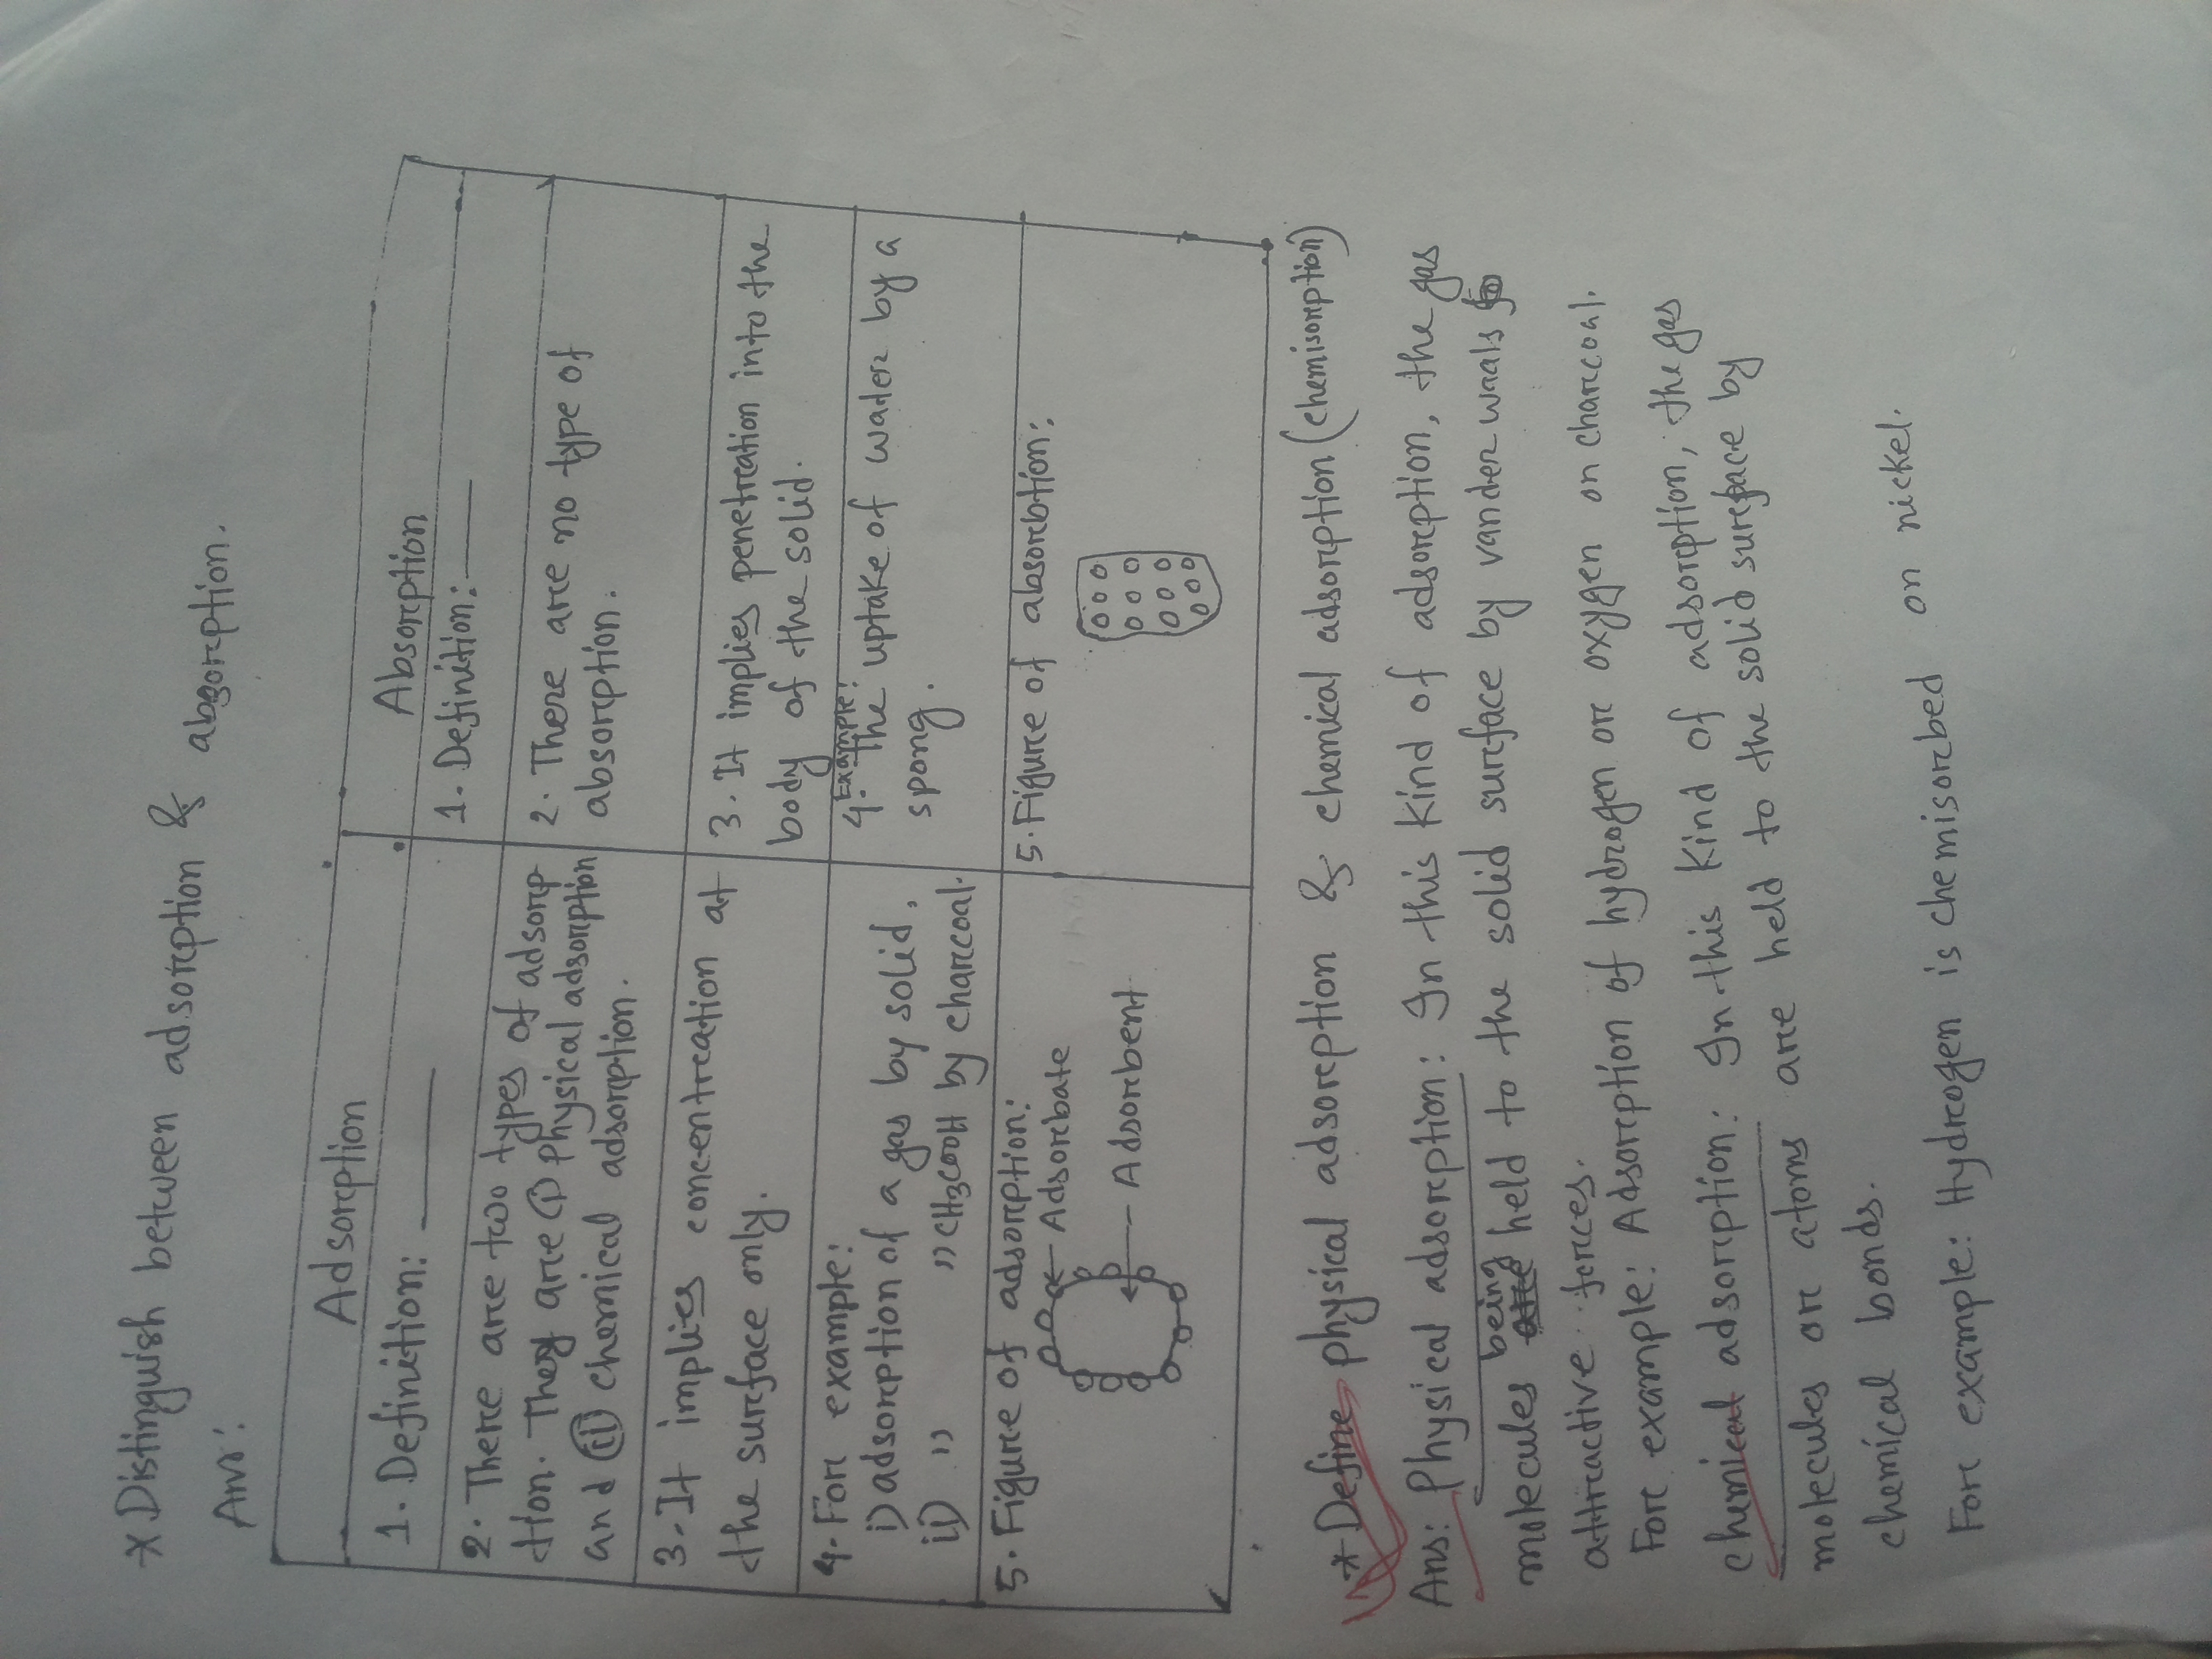 * Distinguish between adsorption & absorption.
Ans:
Adsorption
Absorption
1. Definition:
1. Definition:
2. There are two types of adsorp
tion. They are (i) physical adsorption
and (ii) chemical adsorption.
2. There are no type of
absorption.
3. It implies concentration at
the surface only.
3. It implies penetration into the
body of the solid.
4. For example:
i) adsorption of a gas by solid,
ii) " " CH3COOH by charcoal.
4. Example: The uptake of water by a
spong.
5. Figure of adsorption:
Adsorbate
Adsorbent
5. Figure of absorbtion:
* Define physical adsorption & chemical adsorption (chemisorption)
Ans: Physical adsorption: In this kind of adsorption, the gas
molecules being held to the solid surface by vander waals
attractive forces.
For example: Adsorption of hydrogen or oxygen on charcoal.
chemical adsorption: In this kind of adsorption, the gas
molecules or atoms are held to the solid surface by
chemical bonds.
For example: Hydrogen is chemisorbed on nickel.